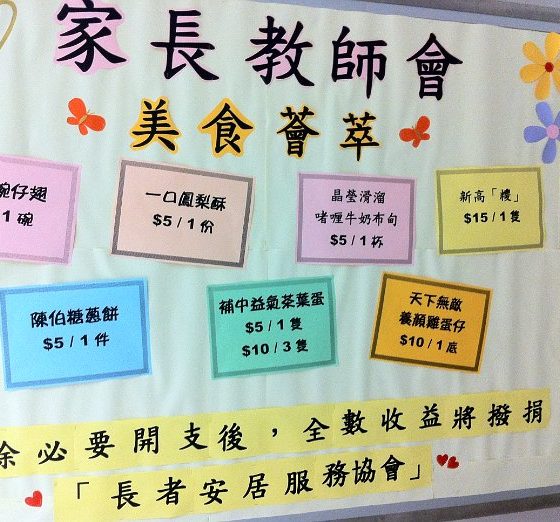 家長教師會
美食薈萃
碗仔翅
1 碗
一口鳳梨酥
$5 / 1 份
晶瑩滑溜
啫喱牛奶布甸
$5 / 1 杯
新高「糭」
$15 / 1 隻
陳伯糖蔥餅
$5 / 1 件
補中益氣茶葉蛋
$5 / 1 隻
$10 / 3 隻
天下無敵
養顏雞蛋仔
$10 / 1 底
除必要開支後，全數收益將撥捐
「長者安居服務協會」